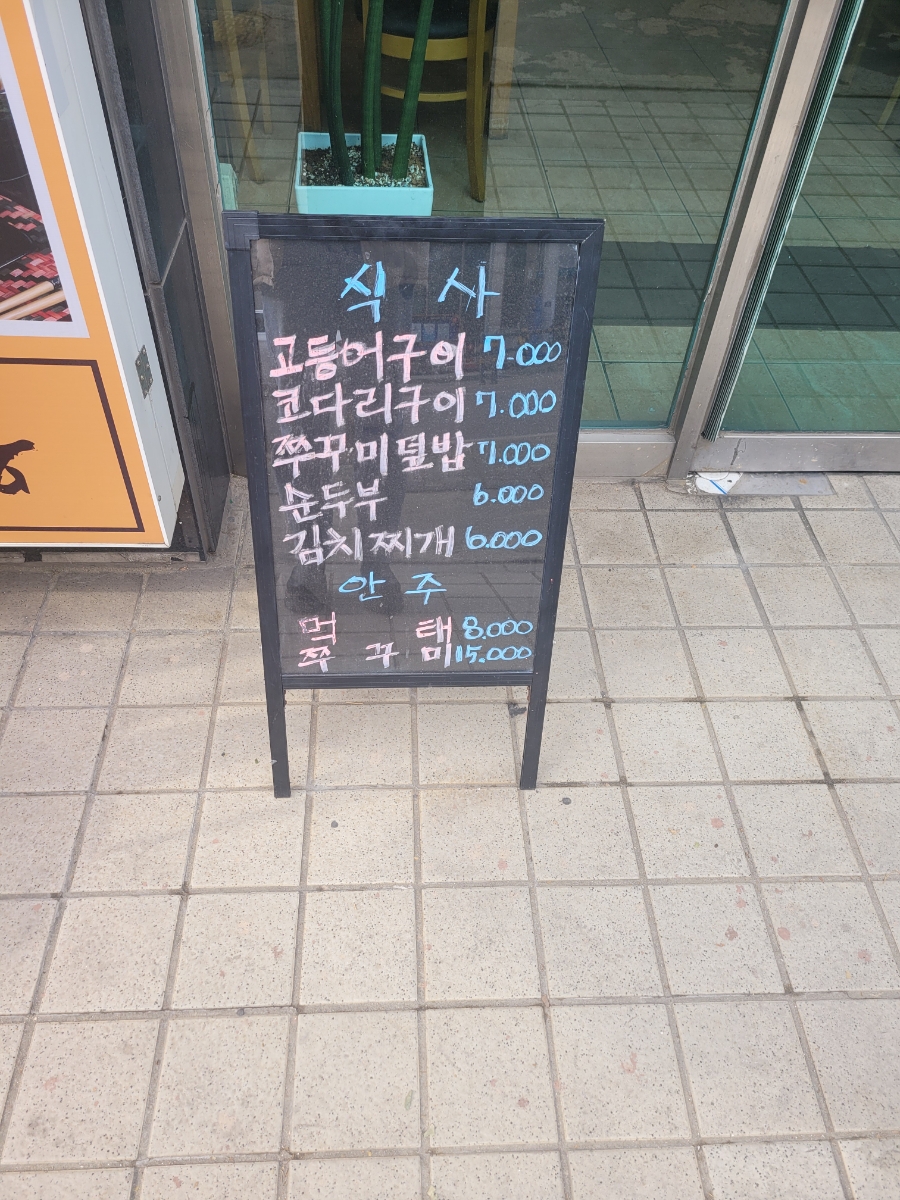 식 사
고등어구이 7.000
코다리구이 7.000
쭈꾸미덮밥 7.000
순두부 6.000
김치찌개 6.000
안 주
먹 태 8.000
쭈 꾸 미 15.000